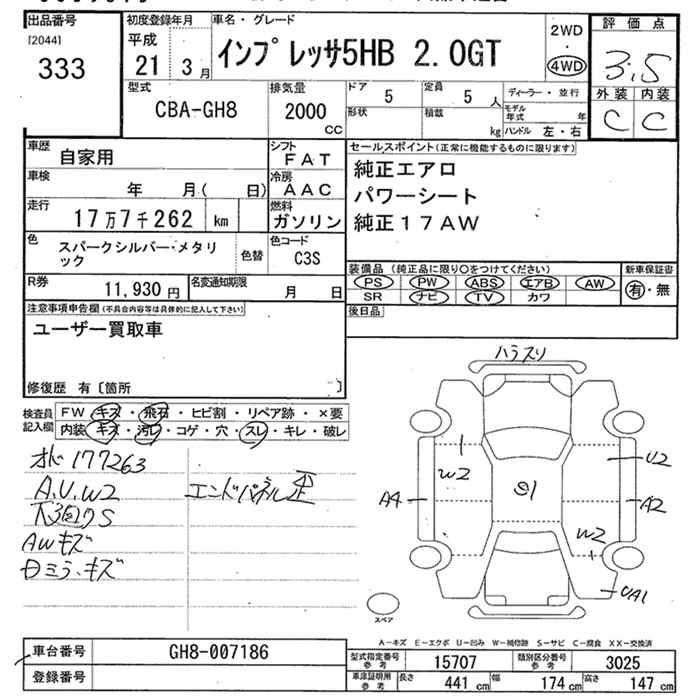 出品番号
[2044]
333
初度登録年月
平成
21 3 月
車名・グレード
インプレッサ5HB 2.0GT
2WD
・
4WD
評価点
3.5
外装 内装
C C
型式
CBA-GH8
排気量
2000
cc
ドア
5
定員
5 人
形状
積載
kg
ディーラー・並行
モデル年式 年
ハンドル 左・右
車歴
自家用
シフト
FAT
車検
年 月( 日)
冷房
AAC
走行
17万7千262 km
燃料
ガソリン
色
スパークシルバー・メタリ
ック
色替
色コード
C3S
R券
11,930 円
名変通知期限
月 日
セールスポイント(正常に機能するものに限ります)
純正エアロ
パワーシート
純正17AW
装備品(純正品に限り○をつけてください)
PS PW ABS エアB AW
SR ナビ TV カワ
新車保証書
有・無
後日品
注意事項申告欄(不具合内容等は具体的に記入して下さい)
ユーザー買取車
修復歴 有〔箇所 〕
検査員
記入欄
FW キズ・飛石・ヒビ割・リペア跡・×要
内装 キズ・汚レ・コゲ・穴・スレ・キレ・破レ
177263
A.U.W2
エンドパネル歪
S
AWキズ
ミラーキズ
ハラスリ
W2
U2
A4
S1
A2
W2
UA1
スペア
A−キズ E−エクボ U−凹み W−補修跡 S−サビ C−腐食 XX−交換済
車台番号
GH8-007186
登録番号
型式指定番号
参考
15707
類別区分番号
参考
3025
車庫証明用
参考
長さ 441 cm 幅 174 cm 高さ 147 cm